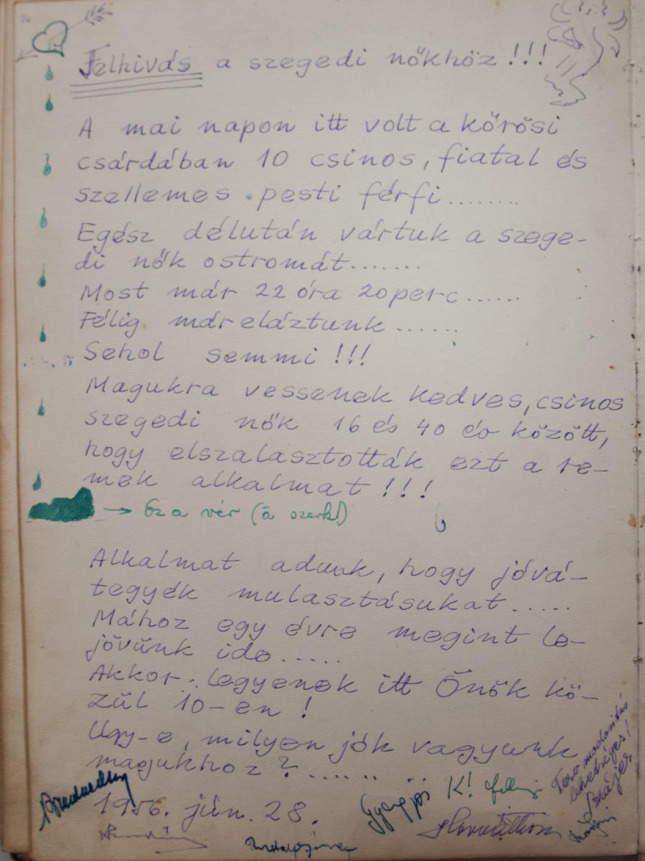 Felhivás a szegedi nőkhöz!!!
A mai napon itt volt a kőrösi
csárdában 10 csinos, fiatal és
szellemes pesti férfi........
Egész délután vártuk a szege-
di nők ostromát.......
Most már 22 óra 20 perc......
Félig már eláztunk......
Sehol semmi!!!
Magukra vessenek kedves, csinos
szegedi nők 16 és 40 év között,
hogy elszalasztották ezt a re-
mek alkalmat!!!
→ Ez a vér (a szerk!)
Alkalmat adunk, hogy jóvá-
tegyék mulasztásukat.....
Mához egy évre megint le-
jövünk ide.....
Akkor legyenek itt Önök kö-
zül 10-en!
Ugy-e, milyen jók vagyunk
magukhoz?......
1956. jún. 28.